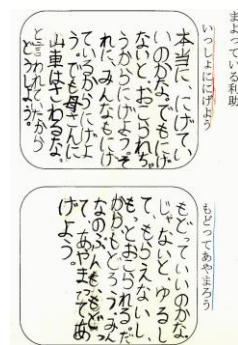 まよっている利助
いっしょににげよう
本当に、にげてい
いのかな。でもにげ
ないと、おこられち
うからにげよう。そ
れに、みんなもにげ
ているからにげよ
う。でも母さんに
山車はさわるな。
と言われていたから
どうしよう。
もどってあやまろう
もどっていいのかな。
じゃないと、ゆるし
て、もらえないし、
も、とおこられる。だ
から、もどろう。みん
なのぶんも、もどっ
て、あやまってあ
げよう。